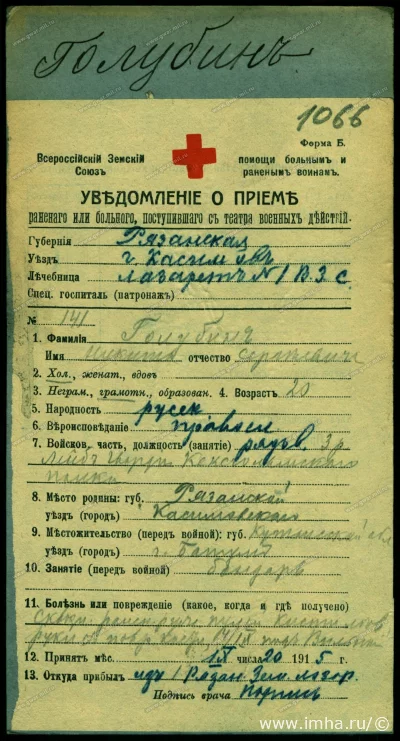 Голубинъ
1066
Форма Б.
Всероссійскій Земскій Союзъ
помощи больнымъ и раненымъ воинамъ.
УВѢДОМЛЕНІЕ О ПРІЕМѢ
раненаго или больного, поступившаго съ театра военныхъ дѣйствій.
Губернія Рязанская
Уѣздъ г. Касимовъ
Лѣчебница лазаретъ № 1 В. З. С.
Спец. госпиталь (патронажъ)
№ 141
1. Фамилія Голубинъ
Имя Никита отчество Сергѣевичъ
2. Хол., женат., вдовъ
3. Неграм., грамотн., образован. 4. Возрастъ 20
5. Народность русск
6. Вѣроисповѣданіе правосл
7. Войсков. часть, должность (занятіе) рядов. 3 р
Лейбъ Гвардіи Кексгольмскаго
полка
8. Мѣсто родины: губ. Рязанской
уѣздъ (городъ) Касимовскаго
9. Мѣстожительство (передъ войной): губ. Кутаисской обл
уѣздъ (городъ) г. Батумъ
10. Занятіе (передъ войной) бондарь
11. Болѣзнь или поврежденіе (какое, когда и гдѣ получено)
руки
12. Принятъ мѣс. IX числа 20 1915 г.
13. Откуда прибылъ изъ 1 Рязан Зем лазар.
Подпись врача
www.imha.ru/©